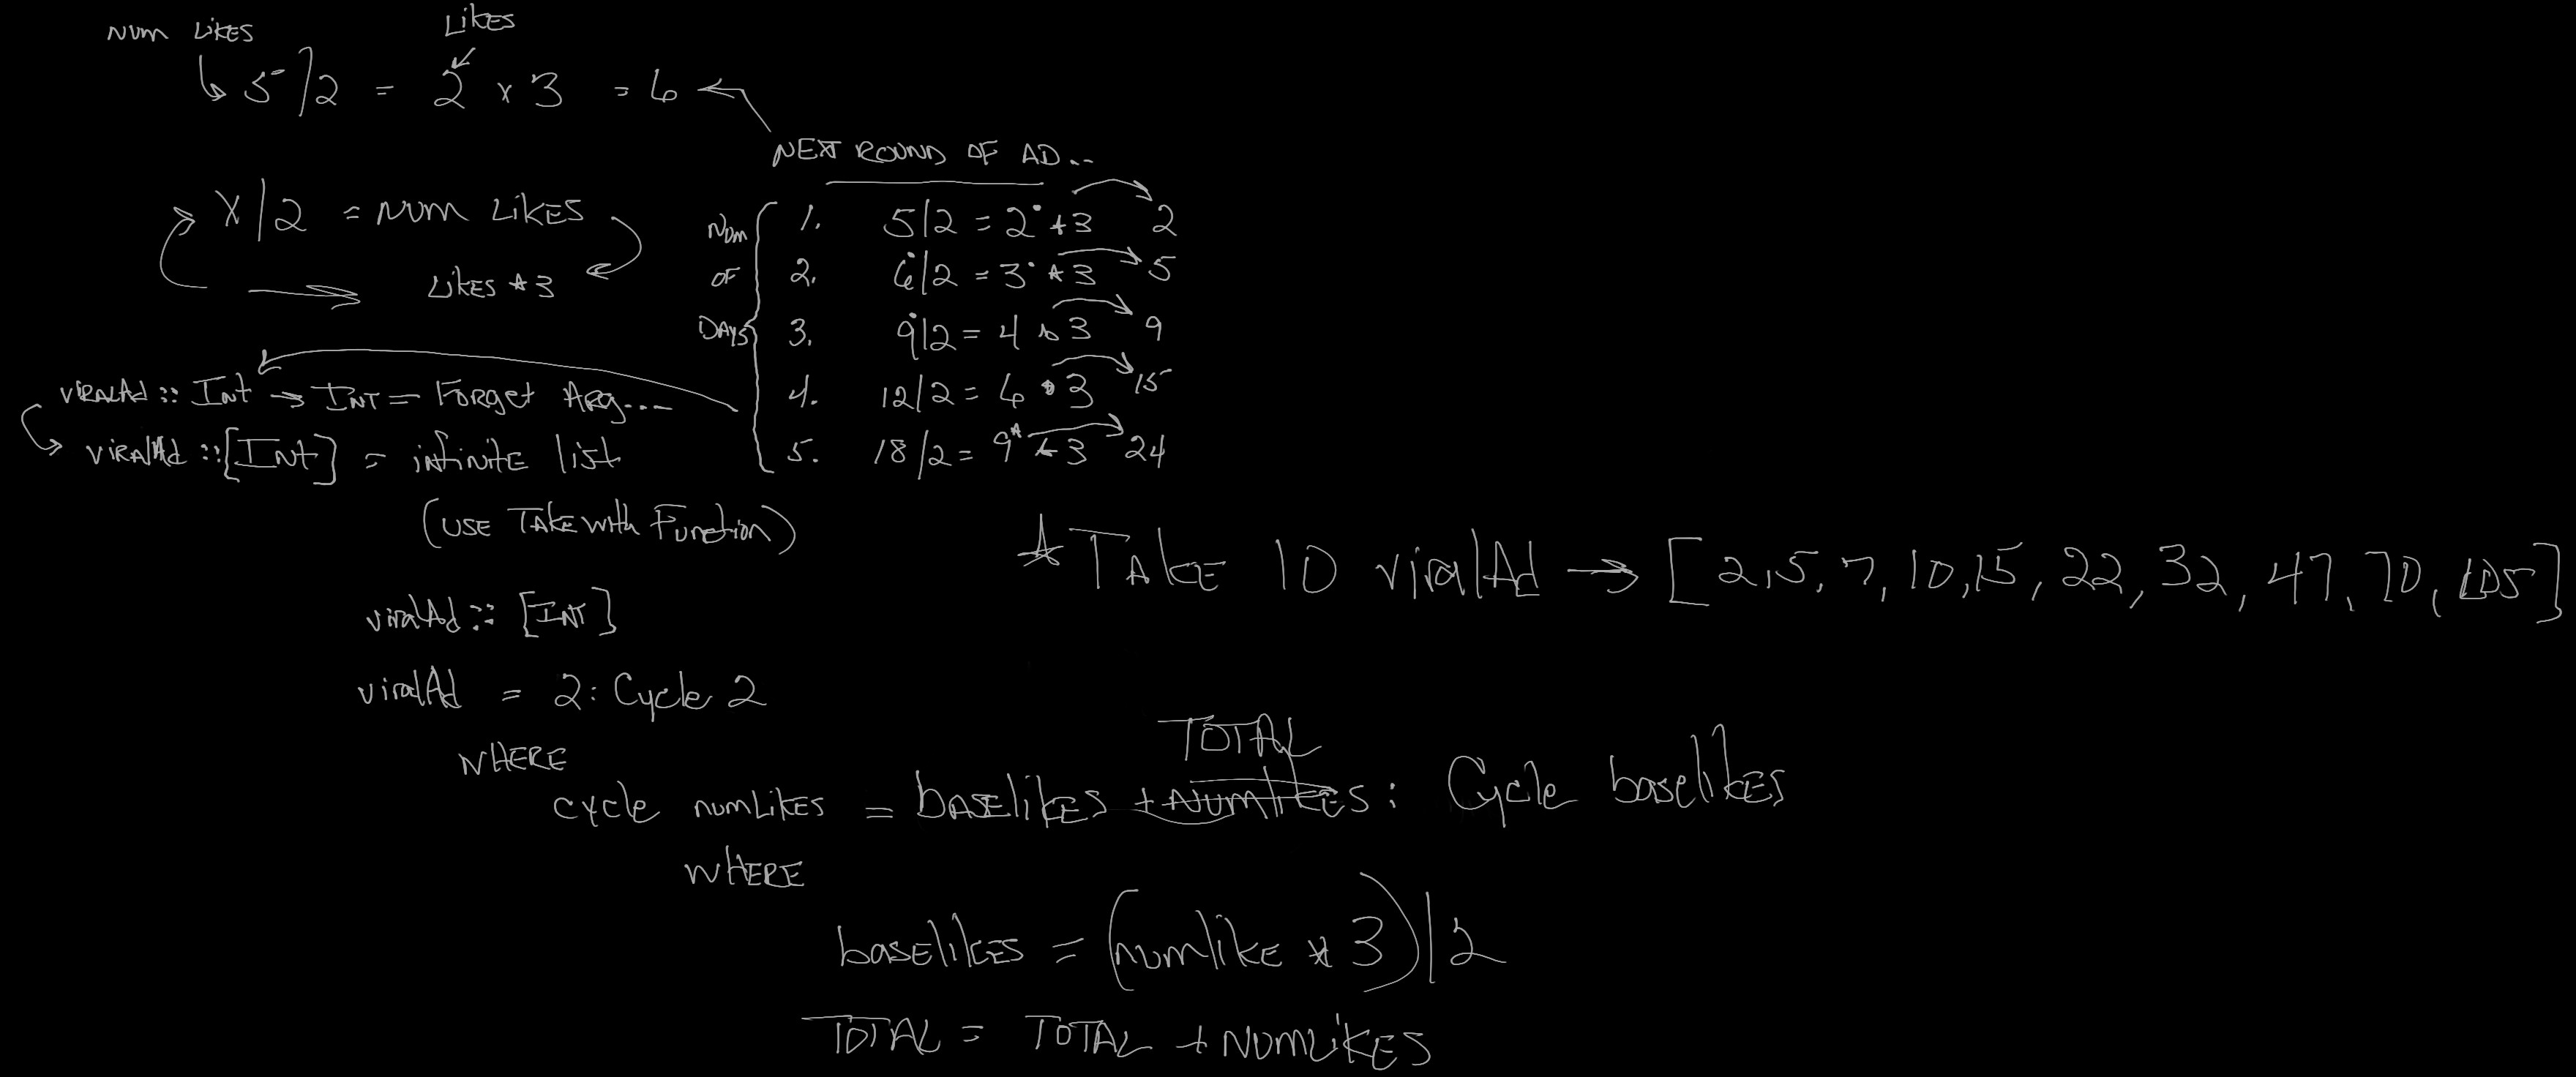 NUM LIKES
LIKES
↳ 5/2 = 2 x 3 = 6 ←
NEXT ROUND OF AD...
X/2 = NUM LIKES
LIKES * 3
NUM OF DAYS
1. 5/2 = 2 * 3 2
2. 6/2 = 3 * 3 5
3. 9/2 = 4 * 3 9
4. 12/2 = 6 * 3 15
5. 18/2 = 9 * 3 24
viralAd :: Int → INT = Forget Arg...
viralAd :: [Int] = infinite list
(USE Take with Function)
* Take 10 viralAd → [2,5,7,10,15,22,32,47,70,105]
viralAd :: [INT]
viralAd = 2 : Cycle 2
WHERE
TOTAL
cycle numLikes = baselikes + Numlikes : Cycle baselikes
WHERE
baselikes = (numlike * 3)/2
TOTAL = TOTAL + NUMLIKES